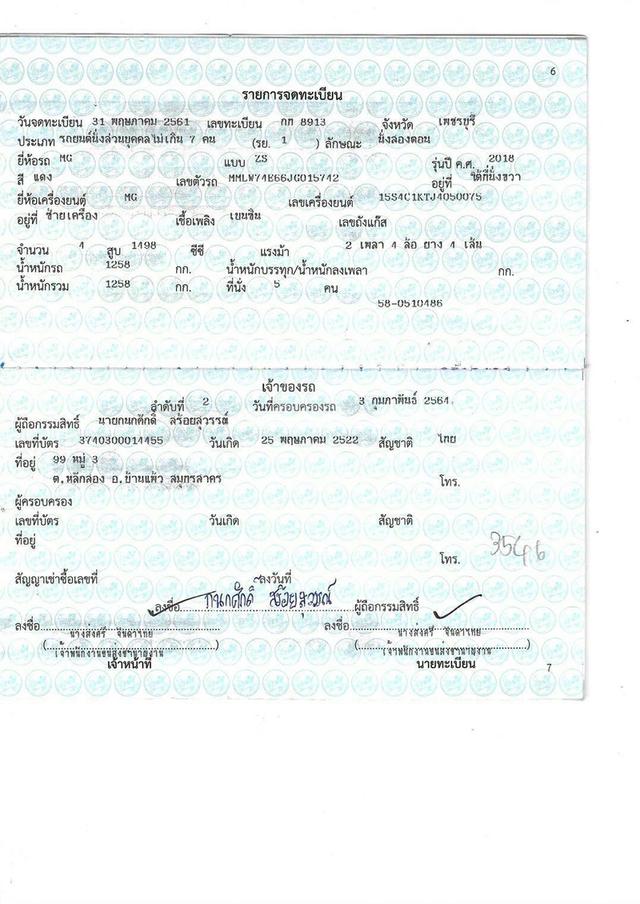 6
รายการจดทะเบียน
วันจดทะเบียน 31 พฤษภาคม 2561 เลขทะเบียน กก 8913 จังหวัด เพชรบุรี
ประเภท รถยนต์นั่งส่วนบุคคลไม่เกิน 7 คน (รย. 1 ) ลักษณะ นั่งสองตอน
ยี่ห้อรถ MG แบบ ZS รุ่นปี ค.ศ. 2018
สี แดง เลขตัวรถ MMLW74E66JG015742 อยู่ที่ ใต้ที่นั่งขวา
ยี่ห้อเครื่องยนต์ MG เลขเครื่องยนต์ 15S4C1KTJ4050075
อยู่ที่ ซ้ายเครื่อง เชื้อเพลิง เบนซิน เลขถังแก๊ส
จำนวน 4 สูบ 1498 ซีซี แรงม้า 2 เพลา 4 ล้อ ยาง 4 เส้น
น้ำหนักรถ 1258 กก. น้ำหนักบรรทุก/น้ำหนักลงเพลา กก.
น้ำหนักรวม 1258 กก. ที่นั่ง 5 คน
58-0510486
เจ้าของรถ
ลำดับที่ 2 วันที่ครอบครองรถ 3 กุมภาพันธ์ 2564
ผู้ถือกรรมสิทธิ์ นายกนกศักดิ์ สร้อยสุวรรต์
เลขที่บัตร 3740300014455 วันเกิด 25 พฤษภาคม 2522 สัญชาติ ไทย
ที่อยู่ 99 หมู่ 3
ต.หลักสอง อ.บ้านแพ้ว สมุทรสาคร โทร.
ผู้ครอบครอง
เลขที่บัตร วันเกิด สัญชาติ
ที่อยู่
โทร.
สัญญาเช่าซื้อเลขที่ ลงวันที่
ลงชื่อ กนกศักดิ์ ผู้ถือกรรมสิทธิ์
ลงชื่อ ลงชื่อ
(นางส่งศรี จินดาไทย) (นางส่งศรี จินดาไทย)
เจ้าพนักงานขนส่งชำนาญงาน เจ้าพนักงานขนส่งชำนาญงาน
เจ้าหน้าที่ นายทะเบียน
7